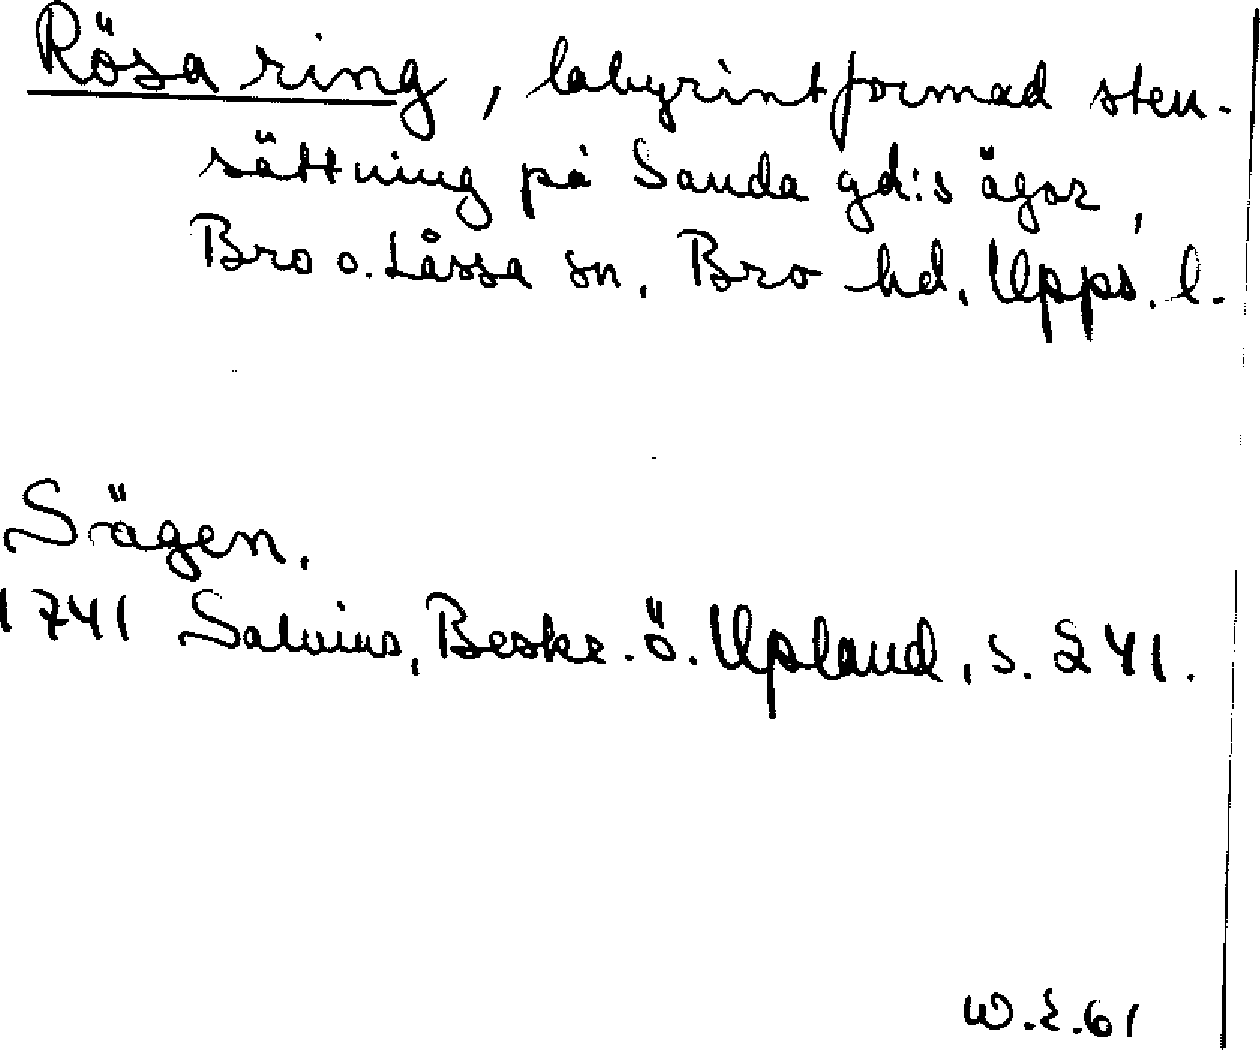 Rösa ring, labyrintformad sten-
sättning på Sanda gd:s ägor,
Bro o. Låssa sn, Bro hd, Upps. l.
Sägen.
1741 Salvius, Beskr. ö. Upland, s. 241.
W.E.61